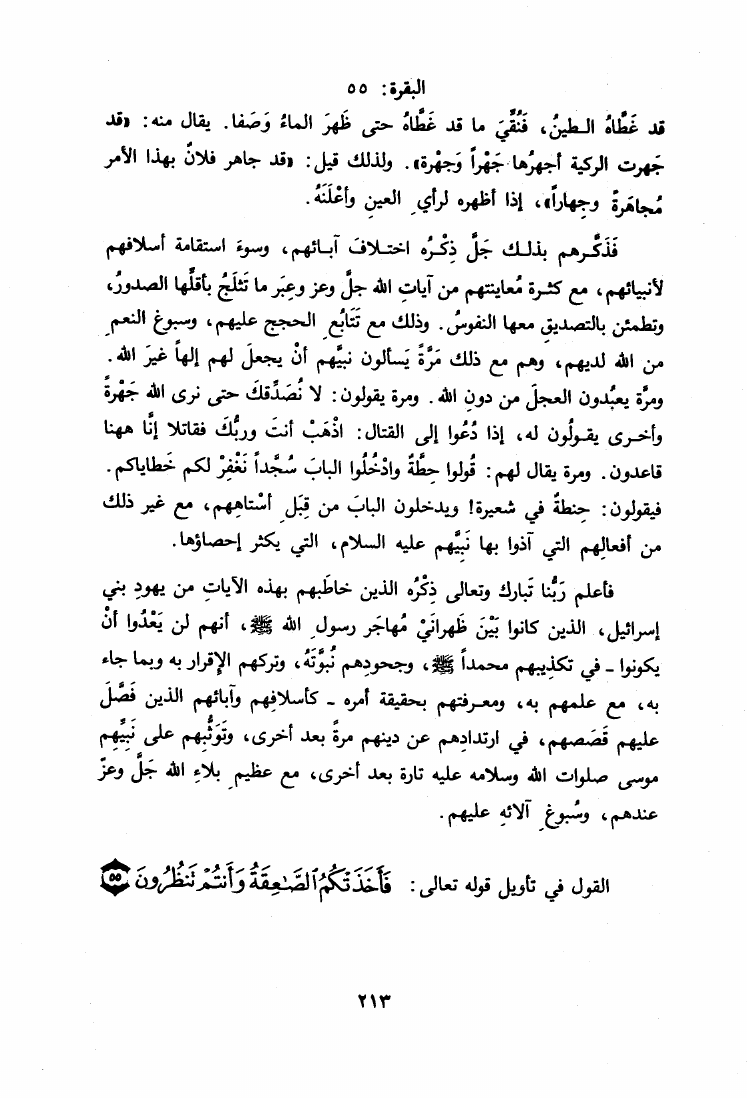 البقرة: ٥٥
قد غَطَّاهُ الـطينُ، فَنُقِّيَ ما قد غَطَّاهُ حتى ظَهرَ الماءُ وَصَفا. يقال منه: «قد
جَهرت الركية أجهرُها جَهْراً وَجهْرة». ولذلك قيل: «قد جاهر فلانٌ بهذا الأمر
مُجاهَرةً وجِهاراً»، إذا أظهره لرأي العينِ وأعْلَنَهُ.
فَذَكَّـرهم بذلـك جَلَّ ذِكْـرُه اختـلافَ آبـائهم، وسوءَ استقامة أسلافهم
لأنبيائهم، مع كثـرة مُعاينتهم من آياتِ الله جلَّ وعز وعِبَر ما تَثلَجُ بأقلِّها الصدورُ،
وتطمئن بالتصديقِ معها النفوسُ. وذلك مع تَتَابُعِ الحجج عليهم، وسبوغ النعمِ
من الله لديهم، وهم مع ذلك مَرَّةً يَسألون نبيَّهم أنْ يجعلَ لهم إلهاً غيرَ الله.
ومرَّة يعبُدون العجلَ من دونِ الله. ومرة يقولون: لا نُصَدِّقكَ حتى نرى الله جَهْرةً
وأخـرى يقـولُون له، إذا دُعُوا إلى القتال: اذْهَبْ أنتَ وربُّكَ فقاتلا إنَّا ههنا
قاعدون. ومرة يقال لهم: قُولوا حِطَّةٌ وادْخُلُوا البابَ سُجَّداً نَغْفِرْ لكم خَطاياكم.
فيقولون: حِنطةٌ في شعيرة! ويدخلون البابَ من قِبَلِ أسْتاهِهم، مع غير ذلك
من أفعالِهم التي آذوا بها نَبِيَّهم عليه السلام، التي يكثر إحصاؤها.
فأعلم رَبُّنا تَبارك وتعالى ذِكْرُه الذين خاطَبهم بهذه الآياتِ من يهودِ بني
إسرائيل، الذين كانوا بَيْنَ ظَهرانَيْ مُهاجَر رسولِ الله ﷺ، أنهم لن يَعْدُوا أنْ
يكونوا ـ في تكذِيبهم محمداً ﷺ، وجحودِهم نُبوَّتَهُ، وتركهم الإقرار به وبما جاء
به، مع علمهم به، ومعـرفتهم بحقيقة أمره ـ كأسلافِهم وآبائهم الذين فَصَّلَ
عليهم قَصَصهم، في ارتدادِهم عن دينهم مرةً بعد أخرى، وتَوَثُّبِهم على نَبِيِّهم
موسى صلوات الله وسلامه عليه تارة بعد أخرى، مع عظيمِ بلاءِ الله جَلَّ وعزَّ
عندهم، وسُبوغِ آلائهِ عليهم.
القول في تأويل قوله تعالى: فَأَخَذَتْكُمُ ٱلصَّـٰعِقَةُ وَأَنتُمْ تَنظُرُونَ ۝٥٥
٢١٣